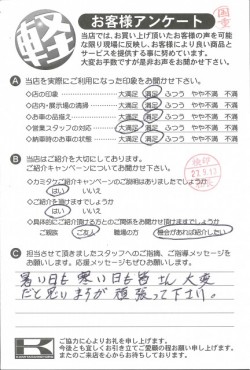 国産
軽
お客様アンケート
当店では、お買い上げ頂いたお客様の声を可能
な限り現場に反映し、お客様により良い商品と
サービスを提供する事に努めています。
大変お手数ですが是非お声をお聞かせ下さい。
A 当店を実際にご利用になった印象をお聞かせ下さい。
◇店の印象 大満足 満足 ふつう やや不満 不満
◇店内・展示場の清掃 大満足 満足 ふつう やや不満 不満
◇お車の品揃え 大満足 満足 ふつう やや不満 不満
◇営業スタッフの対応 大満足 満足 ふつう やや不満 不満
◇納車時のお車の状態 大満足 満足 ふつう やや不満 不満
B 当店はご紹介を大切にしております。
ご紹介キャンペーンについてお聞かせ下さい。
◇カミタケご紹介キャンペーンのご説明はありましたでしょうか
はい いいえ
◇ご紹介を頂けますでしょうか
はい いいえ
◇具体的にご紹介頂ける方とのご関係をお聞かせ頂けますでしょうか
ご親族 ご友人 職場の方 機会があれば紹介したい
C 担当させて頂きましたスタッフへのご指摘、ご指導メッセージを
お願いします。応援メッセージもぜひお願いします。
暑い日も寒い日も皆さん大変
だと思いますが頑張って下さい。
K
ご協力に心よりお礼を申し上げます。
今後とも宜しくお引き立てご愛顧の程お願い申し上げます。
またのご来店を心からお待ちしております。